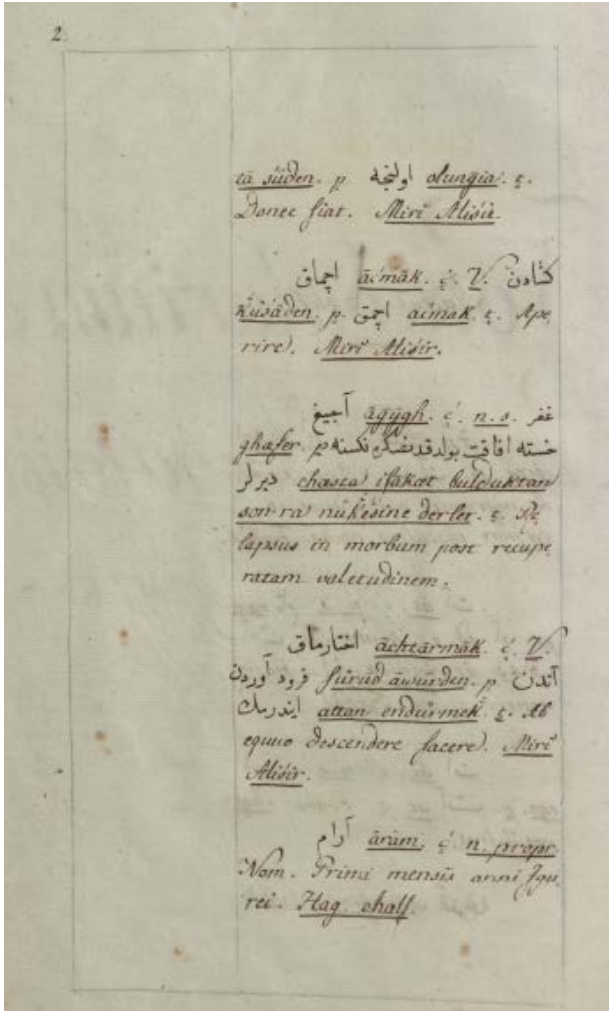 2.
tā süden. p اولنجه olungia. t.
Donec fiat. Miri Alisir.
اچماق āćmāk. ć. V. كشادن
Küśāden. p. اچمق aćmak. t. Ape
rire. Miri Alisir.
آجيغ āgÿgh. ć. n. s. غفر
ghafer. p خسته افاقت بولدقدنصكره نكسنه
ديرلر chasta ifākat bulduktan
son-ra nüKesine derler. t. Re
lapsus in morbum post recupe
ratam valetudinem.
اختارماق āchtārmāk. ć. V.
فرود آوردن fürūd āwürden. p آتدن
ايندرمك attan endürmeK. t. Ab
equo descendere facere. Miri
Alisir.
آرام ārām. ć n. propr
Nom. Primi mensis anni Igu
rei. Hag. chalf.